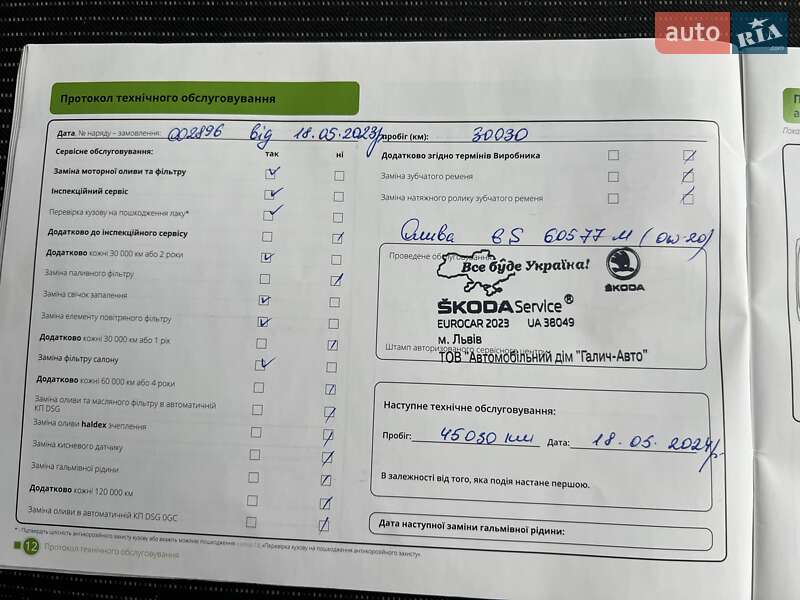 auto RIA.com
Протокол технічного обслуговування
Дата, № наряду – замовлення: 002896 від 18.05.2023р
пробіг (км): 30030
Сервісне обслуговування: так ні
Заміна моторної оливи та фільтру
Інспекційний сервіс
Перевірка кузову на пошкодження лаку*
Додатково до інспекційного сервісу
Додатково кожні 30 000 км або 2 роки
Заміна паливного фільтру
Заміна свічок запалення
Заміна елементу повітряного фільтру
Додатково кожні 30 000 км або 1 рік
Заміна фільтру салону
Додатково кожні 60 000 км або 4 роки
Заміна оливи та масляного фільтру в автоматичній
КП DSG
Заміна оливи haldex зчеплення
Заміна кисневого датчику
Заміна гальмівної рідини
Додатково кожні 120 000 км
Заміна оливи в автоматичній КП DSG 0GC
Додатково згідно термінів Виробника
Заміна зубчатого ременя
Заміна натяжного ролику зубчатого ременя
Олива GS 60577 M (0W-20)
Проведене обслуговування
Все буде Україна!
ŠKODA
ŠKODA Service®
EUROCAR 2023 UA 38049
м. Львів
Штамп авторизованого сервісного центру
ТОВ "Автомобільний дім "Галич-Авто"
Наступне технічне обслуговування:
Пробіг: 45030 км Дата: 18.05.2024р.
В залежності від того, яка подія настане першою.
Дата наступної заміни гальмівної рідини:
12 Протокол технічного обслуговування